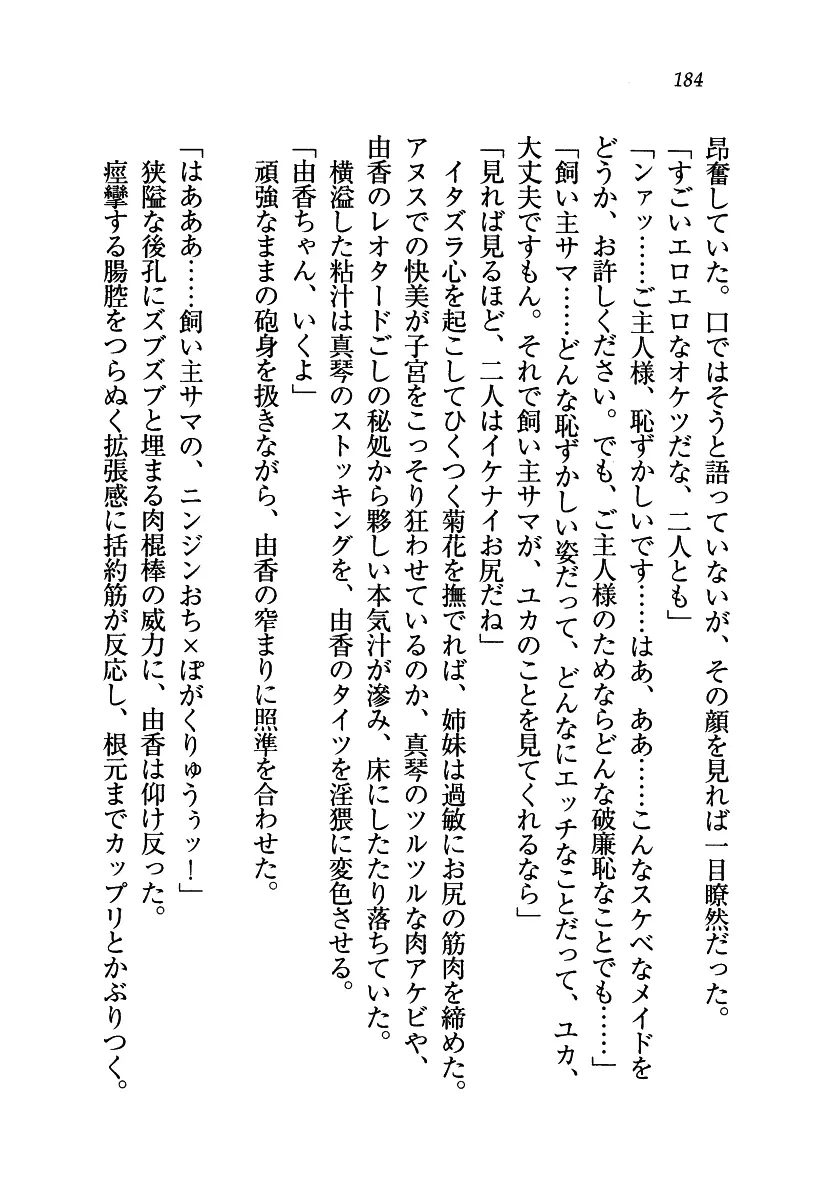 184
昂奮していた。口ではそうと語っていないが、その顔を見れば一目瞭然だった。
「すごいエロエロなオケツだな、二人とも」
「ンァッ……ご主人様、恥ずかしいです……はあ、ああ……こんなスケベなメイドを
どうか、お許しください。でも、ご主人様のためならどんな破廉恥なことでも……」
「飼い主サマ……どんな恥ずかしい姿だって、どんなにエッチなことだって、ユカ、
大丈夫ですもん。それで飼い主サマが、ユカのことを見てくれるなら」
「見れば見るほど、二人はイケナイお尻だね」
イタズラ心を起こしてひくつく菊花を撫でれば、姉妹は過敏にお尻の筋肉を締めた。
アヌスでの快美が子宮をこっそり狂わせているのか、真琴のツルツルな肉アケビや、
由香のレオタードごしの秘処から夥しい本気汁が滲み、床にしたたり落ちていた。
横溢した粘汁は真琴のストッキングを、由香のタイツを淫猥に変色させる。
「由香ちゃん、いくよ」
頑強なままの砲身を扱きながら、由香の窄まりに照準を合わせた。
「はあああ……飼い主サマの、ニンジンおち×ぽがくりゅうぅッ！」
狭隘な後孔にズブズブと埋まる肉棍棒の威力に、由香は仰け反った。
痙攣する腸腔をつらぬく拡張感に括約筋が反応し、根元までカップリとかぶりつく。